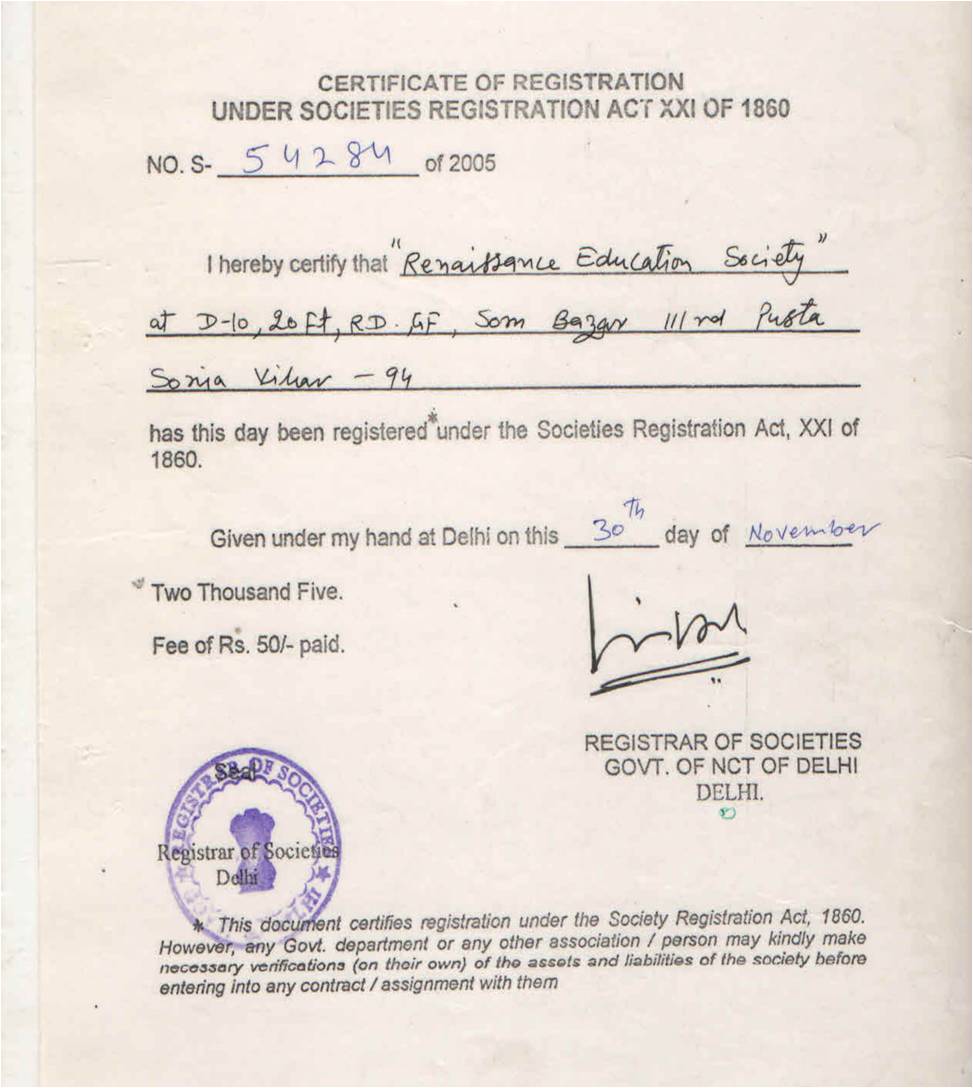 CERTIFICATE OF REGISTRATION
UNDER SOCIETIES REGISTRATION ACT XXI OF 1860
NO. S- 54284 of 2005
I hereby certify that "Renaissance Education Society"
at D-10, 20 Ft, RD. GF, Som Bazar IIIrd Pusta
Sonia Vihar - 94
has this day been registered* under the Societies Registration Act, XXI of
1860.
Given under my hand at Delhi on this 30th day of November
Two Thousand Five.
Fee of Rs. 50/- paid.
REGISTRAR OF SOCIETIES
GOVT. OF NCT OF DELHI
DELHI.
Seal
REGISTRAR OF SOCIETIES
Registrar of Societies
Delhi
* This document certifies registration under the Society Registration Act, 1860.
However, any Govt. department or any other association / person may kindly make
necessary verifications (on their own) of the assets and liabilities of the society before
entering into any contract / assignment with them